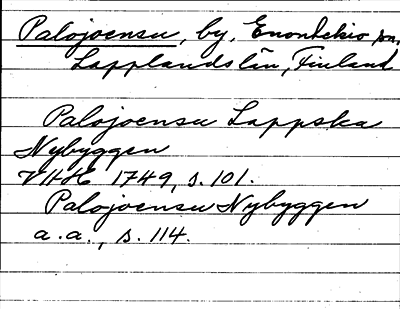 Palojoensu, by, Enontekio sn,
Lapplands län, Finland
Palojoensu Lappska
Nybyggen
VHH 1749, s. 101.
Palojoensu Nybyggen
a.a., s. 114.